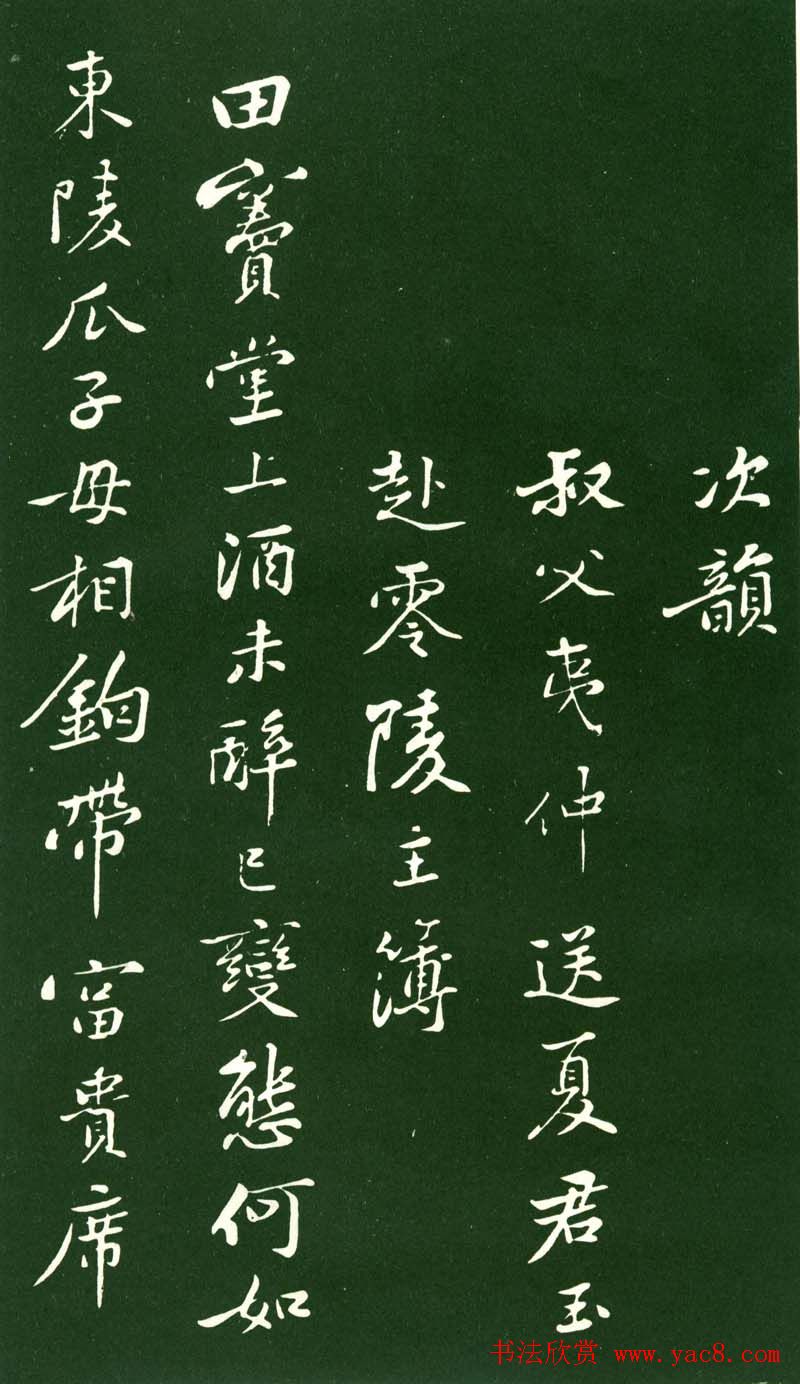 次韻
叔父夷仲送夏君玉
赴零陵主簿
田竇堂上酒未醉已變態何如
東陵瓜子母相鉤帶富貴席
书法欣赏 www.yac8.com